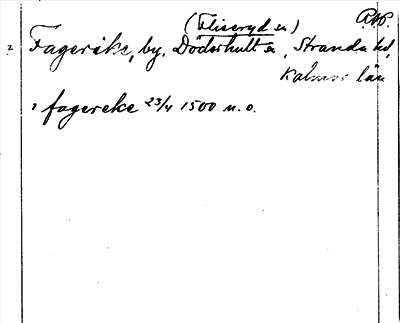 (Fliseryd sn) RAP.
2 Fagereke, by, Döderhult sn, Stranda hd,
Kalmar län
i fagereke 23/4 1500 n. o.